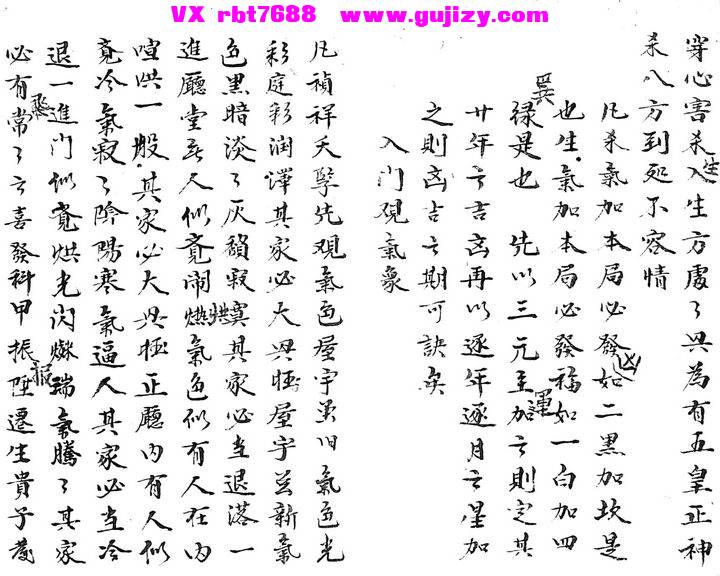 VX rbt7688 www.gujizy.com
穿心害杀入生方處々興為有五皇正神
生
杀八方到処不容情
凡杀氣加本局必發如二黑加坎是
凶
也生氣加本局必發福如一白加四
巽
禄是也 先以三元至加言則定其
運
廿年之吉凶再以逐年逐月之星加
之則凶吉之期可訣矣
入門观氣象
凡禎祥夭孽先观氣色屋宇雖旧氣色光
彩庭彩潤澤其家必大興旺屋宇並新氣
色黑暗淡々灰頹寂寞其家必当退落一
進廳堂無人似覔闹烘氣色似有人在内
燃
喧哄一般其家必大興旺正廳内有人似
竟冷氣寂々陰陽寒氣逼人其家必当冷
退一進門似覔烘光闪爍瑞氣騰々其家
必有常々之喜發科甲振陞遷生貴子發
報